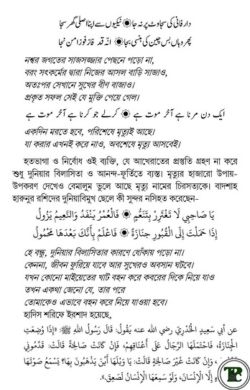 دار فانی کی سجاوٹ پر نہ جا ۞ نیکیوں سے اپنا اصلی گھر سجا
پھر وہاں بس چین کی بنسی بجا ۞ انہ قد فاز فوزا من نجا
নশ্বর জগতের সাজসজ্জার পেছনে পড়ো না,
বরং সৎকর্মের দ্বারা নিজের আসল বাড়ি সাজাও,
অতঃপর সেখানে সুখের বীণ বাজাও।
প্রকৃত সফল সেই যে মুক্তি পেয়ে গেল।
ایک دن مرنا ہے آخر موت ہے ۞ کرلے جو کرنا ہے آخر موت ہے
একদিন মরতে হবে, পরিশেষে মৃত্যুই আছে।
যা করার এখনই করে নাও, অবশেষে মৃত্যু আসবেই।
হতভাগা ও নির্বোধ ওই ব্যক্তি, যে আখেরাতের প্রস্তুতি গ্রহণ না করে
শুধু দুনিয়ার বিলাসিতা ও আনন্দ-ফূর্তিতে ব্যস্ত। মৃত্যুর হাজারো উপায়-
উপকরণ দেখেও বেমালুম ভুলে আছে মৃত্যু নামের চিরসত্যকে। বাদশাহ
হারুনুর রশিদের দুনিয়াবিমুখ ছেলে কী সুন্দর নসিহত করেছেন-
يَا صَاحِبِي لَا تَغْتَرِرْ بِتَنَعُّمٍ ۞ فَالْعُمُرُ يَنْفَدُ وَالنَّعِيمُ يَزُولُ
وَإِذَا حَمَلْتَ إِلَى الْقُبُورِ جَنَازَةً ۞ فَاعْلَمْ بِأَنَّكَ بَعْدَهَا مَحْمُولُ
হে বন্ধু, দুনিয়ার বিলাসিতার কারণে ধোঁকায় পড়ো না।
কেননা, জীবন ফুরিয়ে যাবে আর সুখেরও অবসান ঘটবে।
যখন কোনো মাইয়েতের খাট বহন করে কবরের দিকে নিয়ে যাও
তখন একথা জেনো যে, তার পরে
তোমাকেও এভাবে বহন করে নিয়ে যাওয়া হবে।
হাদিস শরিফে ইরশাদ হয়েছে,
عن أبي سعيد الخدري رضي الله عنه يقول: قال رسول الله ﷺ: «إذا وضعت
الجنازة، فاحتملها الرجال على أعناقهم، فإن كانت صالحة قالت: قدموني
، وإن كانت غير صالحة قالت: يا ويلها أين يذهبون بها؟ يسمع صوتها
إلا الإنسان، ولو سمعها الإنسان لصعق».